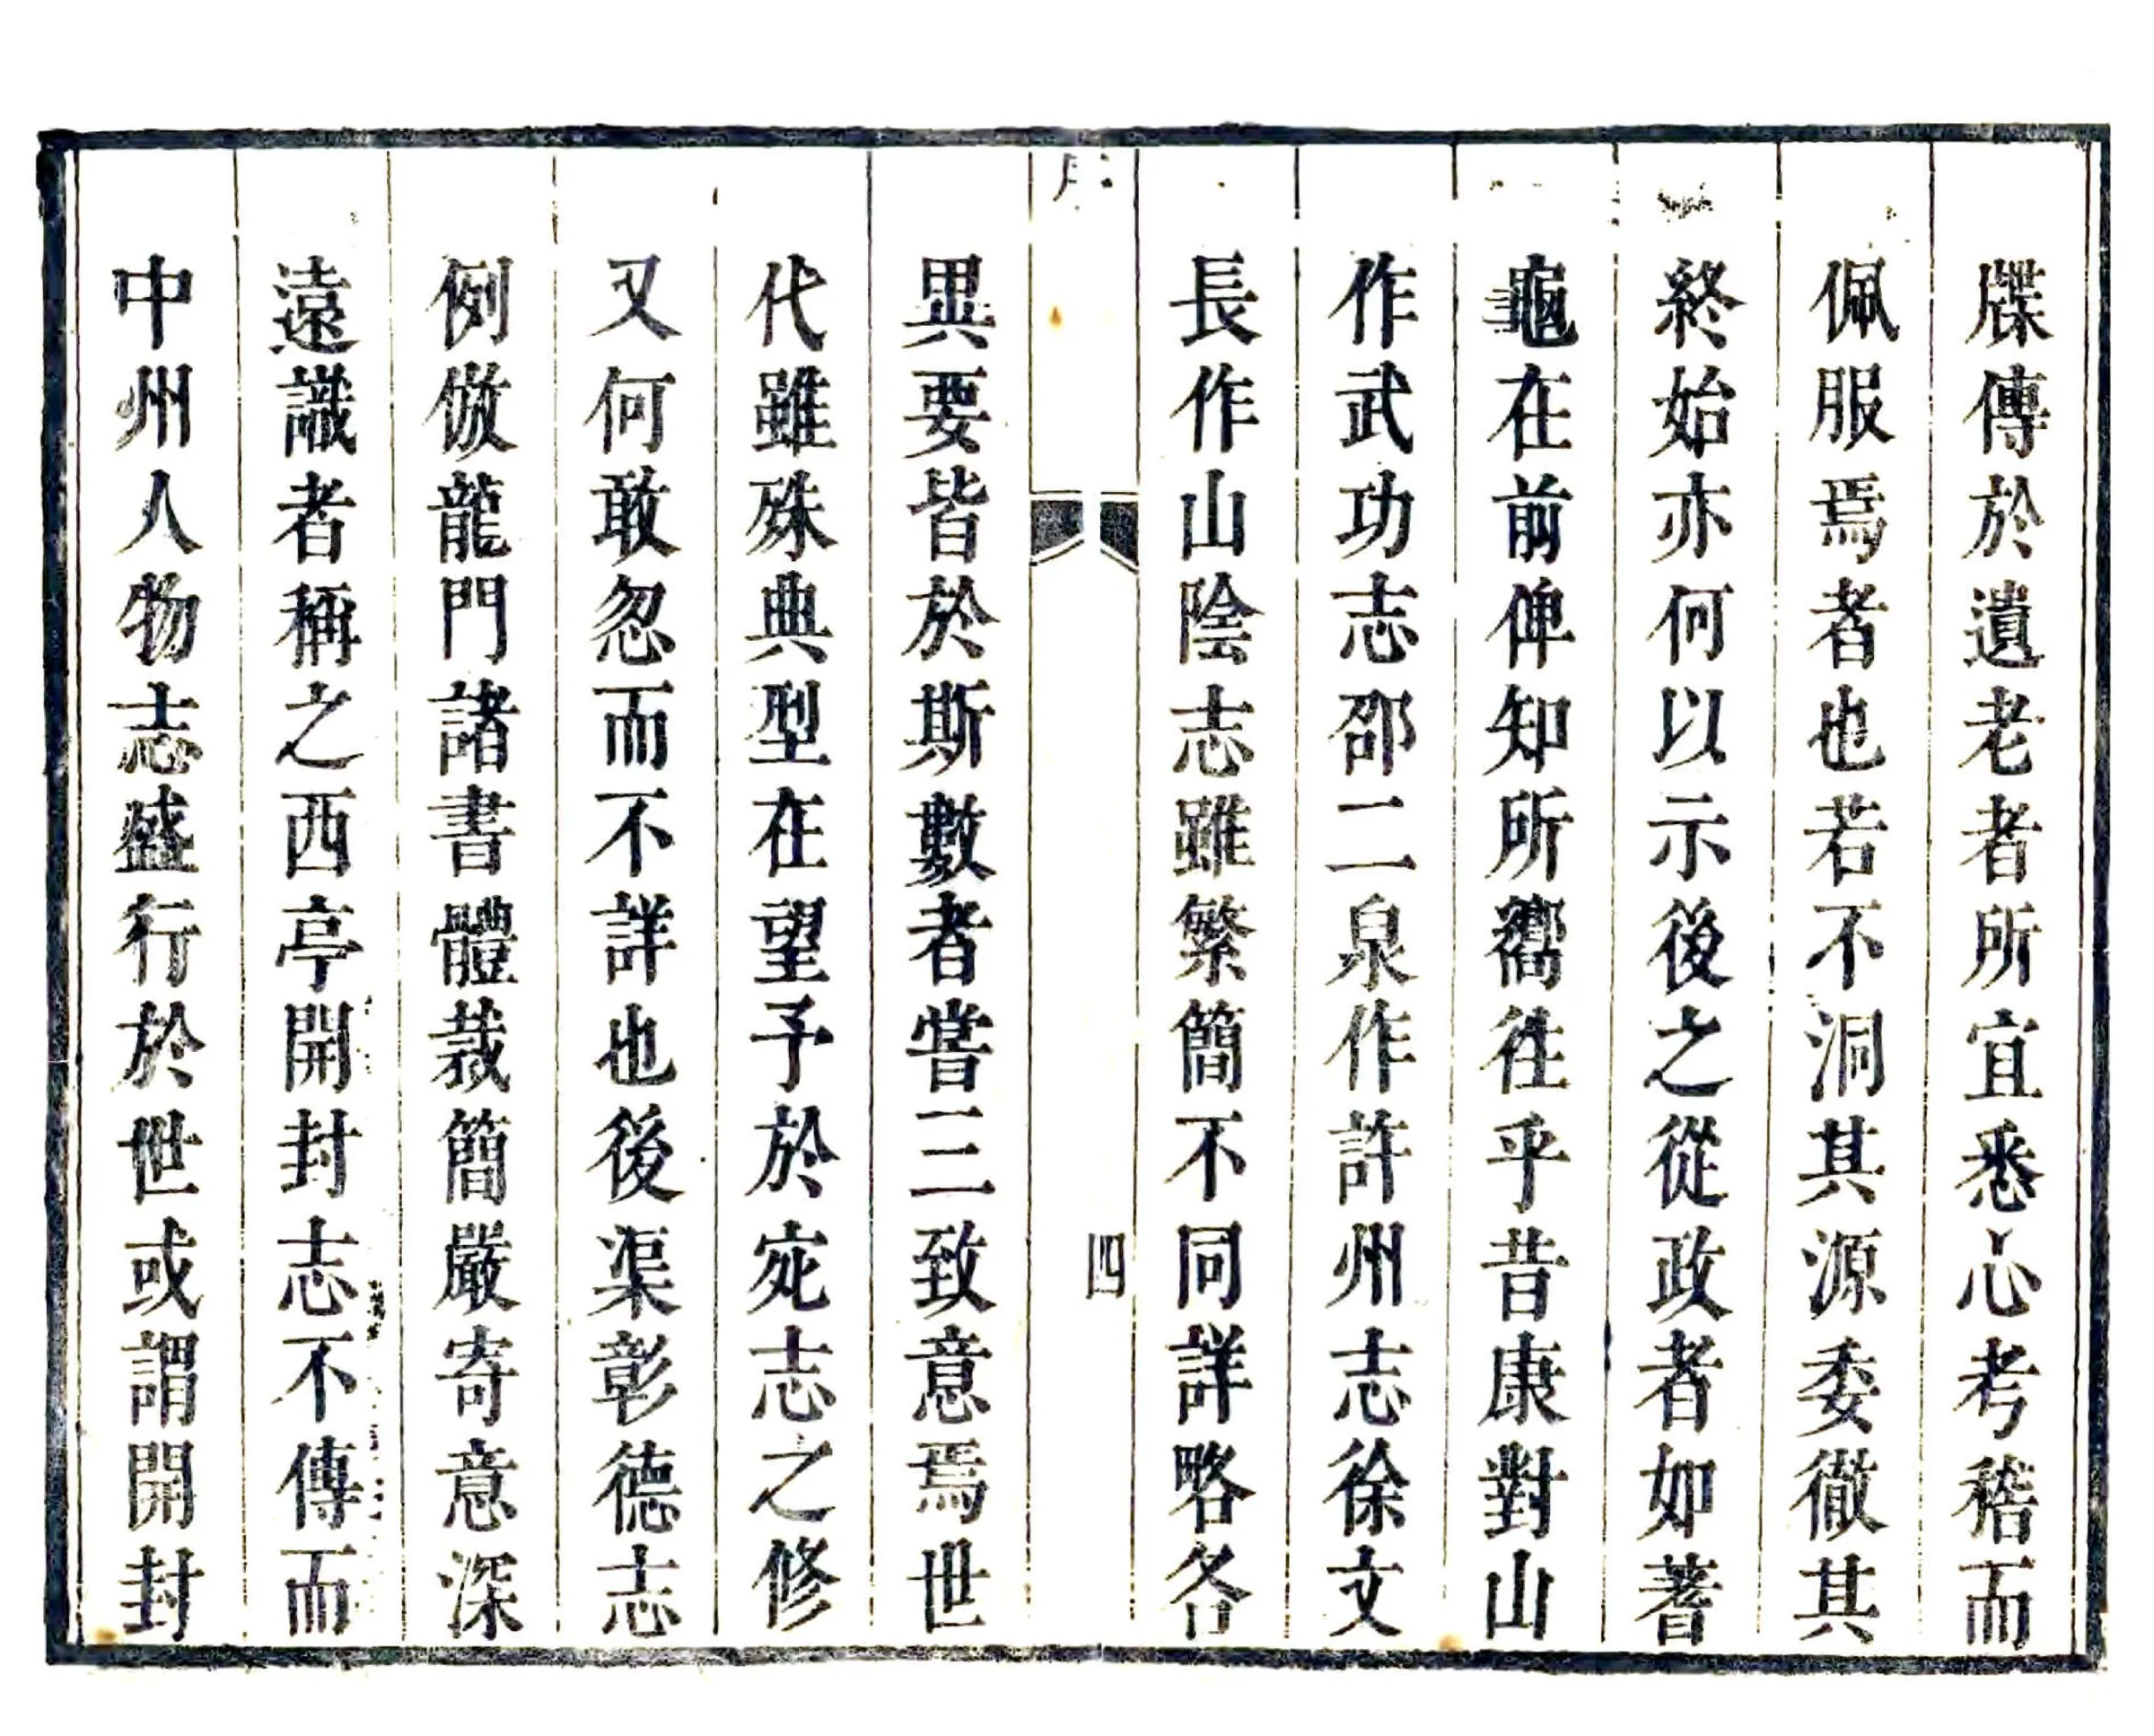 牒傳於遺老者所宜悉心考稽而
佩服焉者也若不洞其源委徹其
終始亦何以示後之從政者如蓍
龜在前俾知所嚮徃乎昔康對山
作武功志邵二泉作許州志徐文
長作山陰志雖繁簡不同詳略各
四
異要皆於斯數者嘗三致意焉世
代雖殊典型在望予於宛志之修
又何敢忽而不詳也後渠彰德志
例倣龍門諸書體裁簡嚴寄意深
遠識者稱之西亭開封志不傳而
中州人物志盛行於世或謂開封